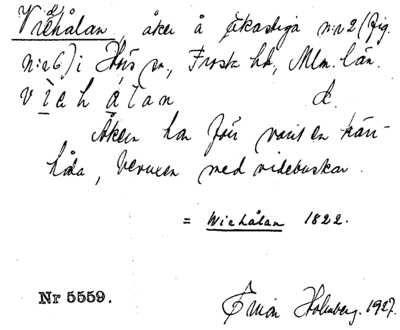 Videhålan, åker å Ekastiga n:r 2 (fig.
n:r 6) i Hörs sn, Frosta hd, Mlm. län.
vịəhålan d.
Åkern har förr varit en kärr-
håla, bevuxen med videbuskar.
= Wiehålan 1822.
Nr 5559.
Ewin Holmberg. 1927.